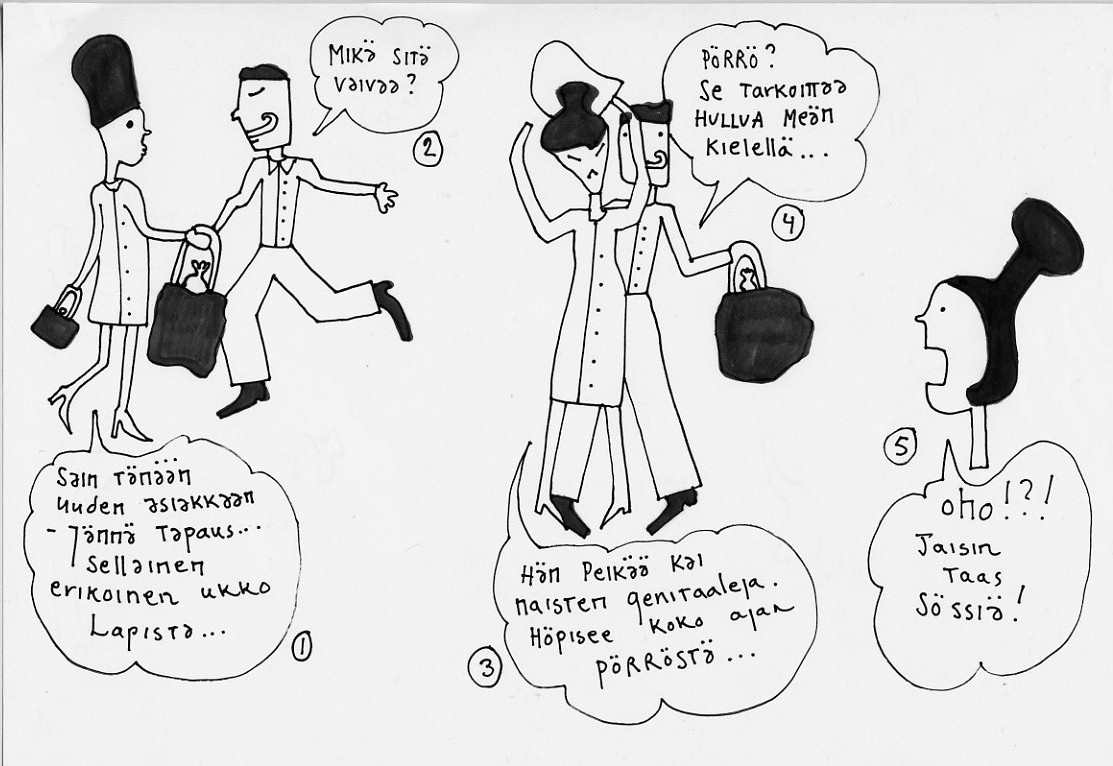 Sain tänään
uuden asiakkaan
- Jännä tapaus...
Sellainen
erikoinen ukko
Lapista...
1
Mikä sitä
vaivaa?
2
Hän pelkää kai
naisten genitaaleja.
Höpisee koko ajan
pörröstä...
3
PÖRRÖ?
Se tarkoittaa
HULLUA Meän
kielellä...
4
oho!?!
Taisin
Taas
Sössiä!
5